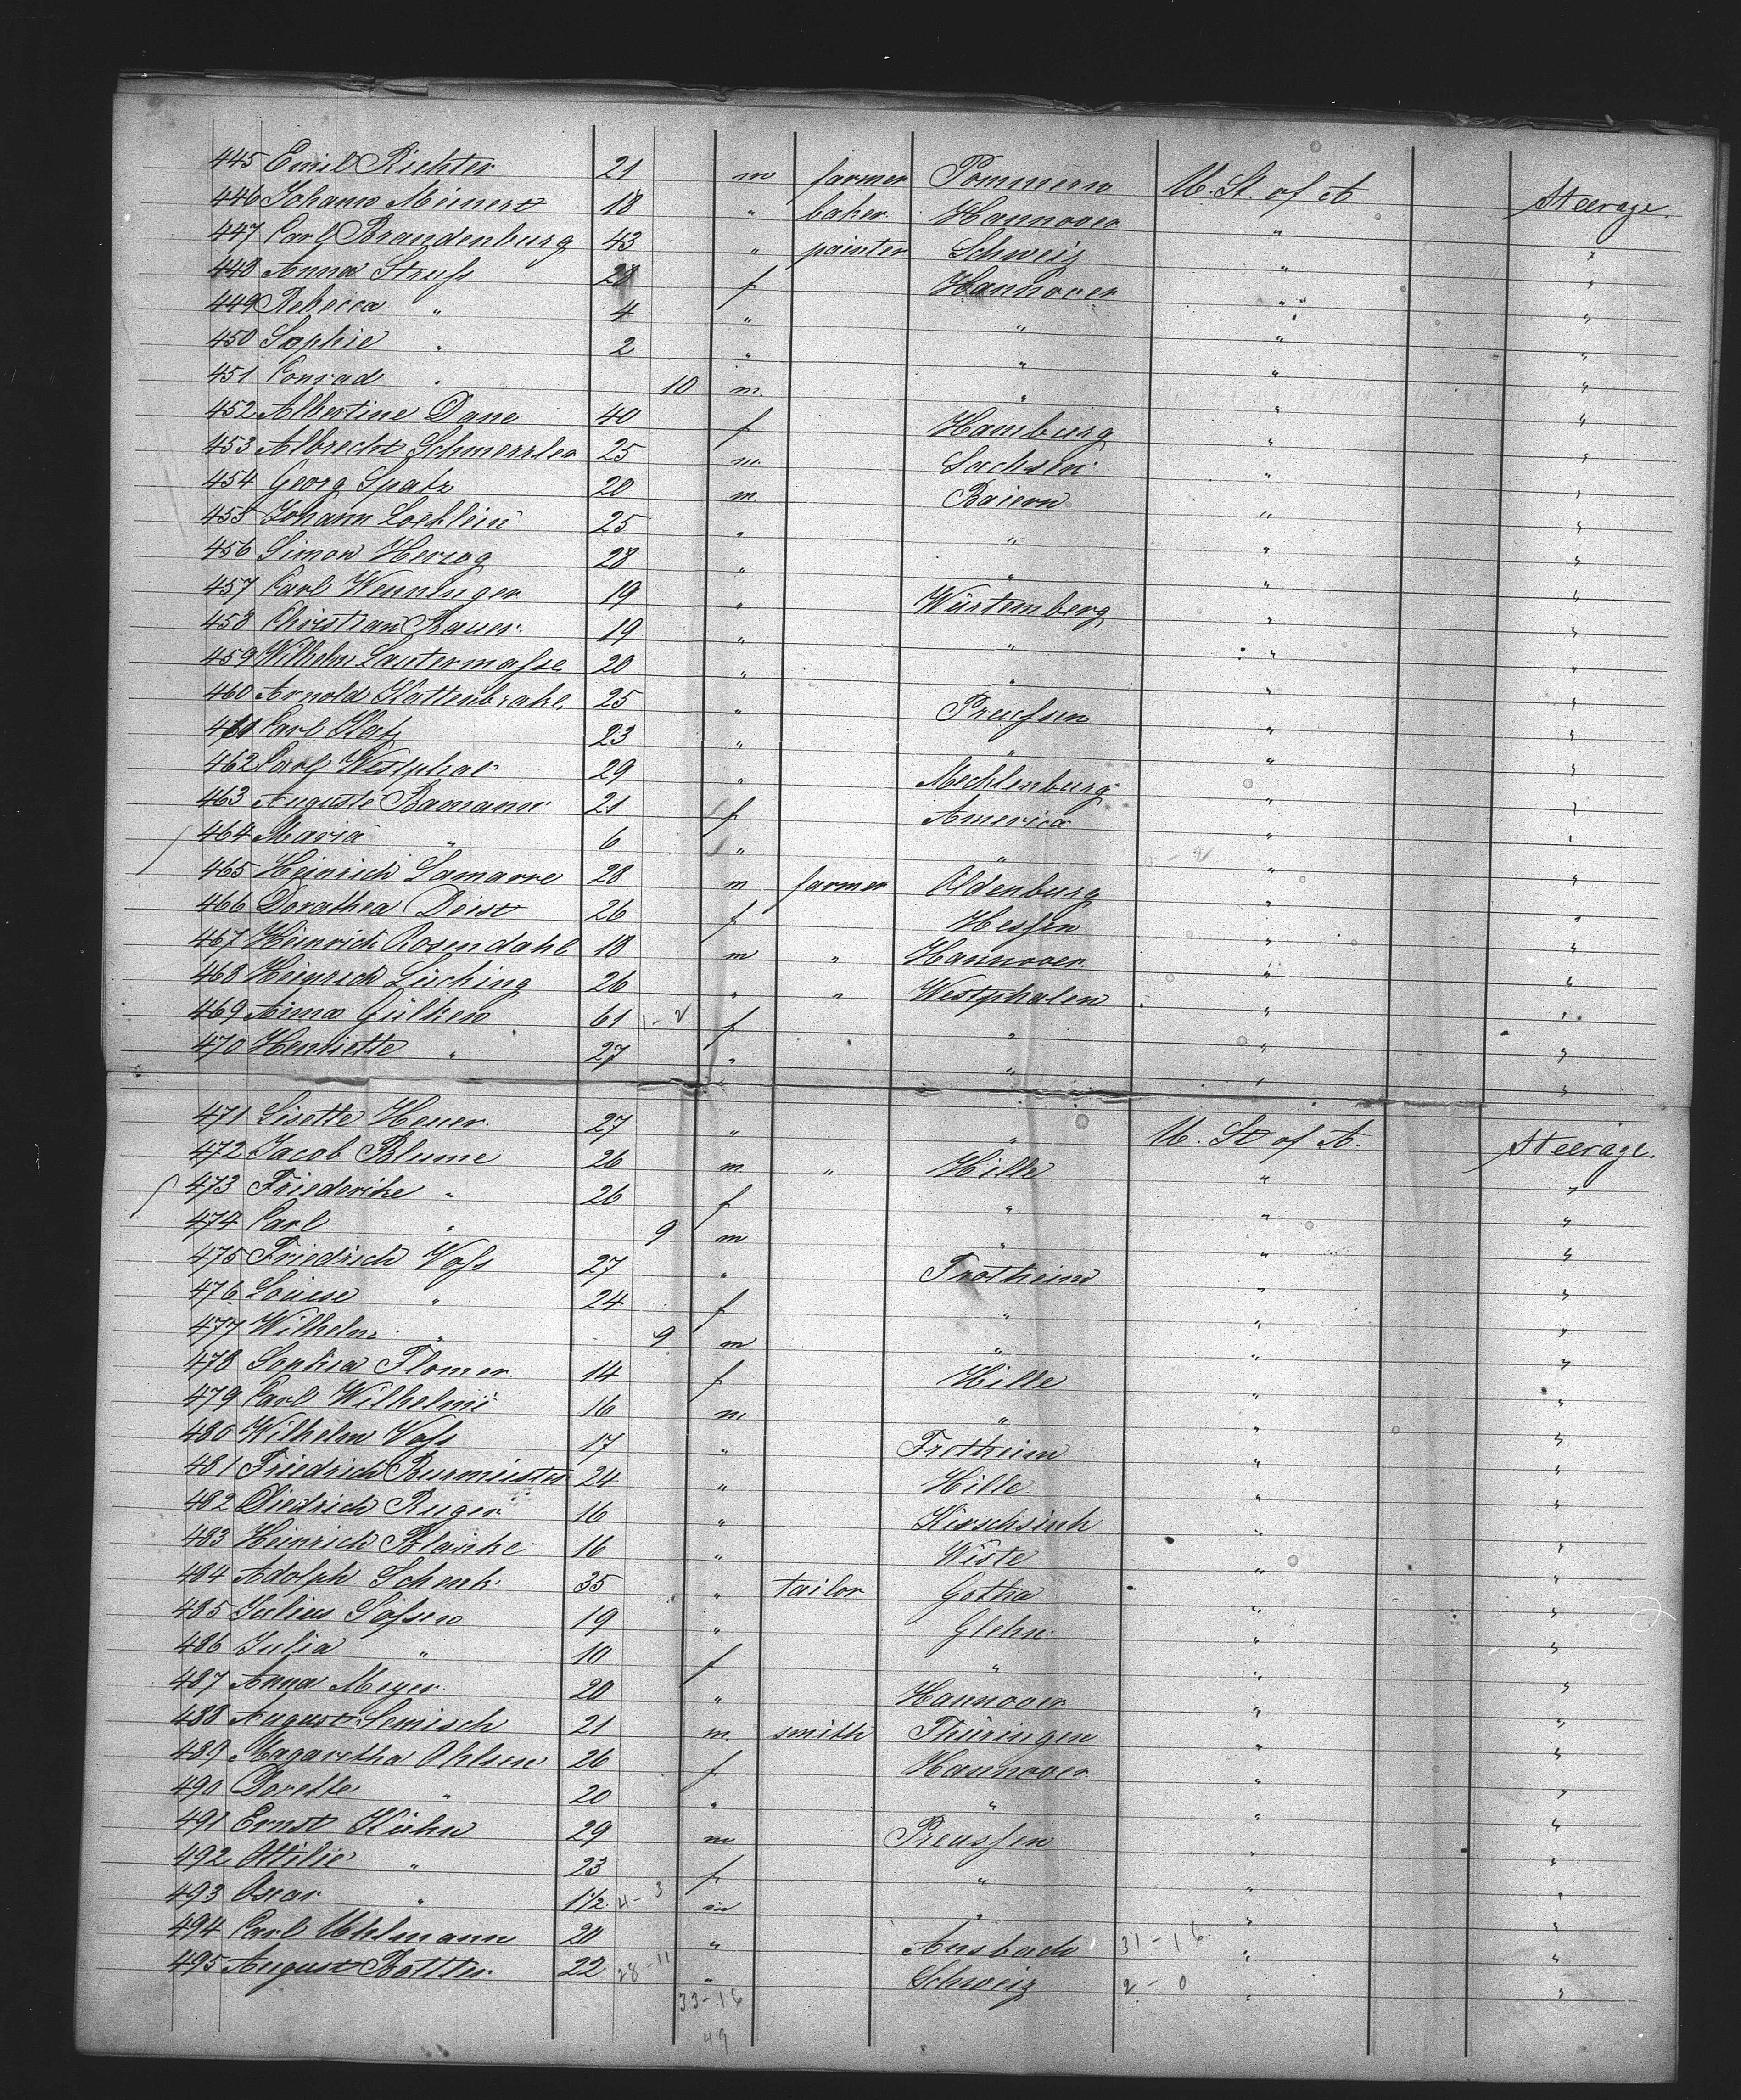 445 Emil Richter 21 m farmer Pommern U. St. of A Steerage
446 Johann Meinert 18 " baker Hannover " "
447 Carl Brandenburg 43 " painter Schweiz " "
448 Anna Struß 28 f Hannover " "
449 Rebecca " 4 " " " "
450 Sophie " 2 " " " "
451 Conrad " 10 m. " " "
452 Albertine Dane 40 f Hamburg " "
453 Albrecht Schmerrler 25 m Sachsen " "
454 Georg Spatz 20 m. Baiern " "
455 Johann Loeblein 25 " " " "
456 Simon Herzog 28 " " " "
457 Carl Wenninger 19 " Würtemberg " "
458 Christian Bauer 19 " " " "
459 Wilhelm Lautermasse 20 " " " "
460 Arnold 25 " Preußen " "
461 Carl 23 " " " "
462 Carl Westphal 29 " Mecklenburg " "
463 Auguste Bamann 21 f America " "
464 Maria " 6 " " " "
465 Heinrich Lamarre 28 m farmer Oldenburg " "
466 Dorathea Deist 26 f Hessen " "
467 Heinrich Rosendahl 18 m " Hannover " "
468 Heinrich Lüching 26 " " Westphalen " "
469 Anna Gülker 61 f " " "
470 Henriette " 27 " " " "
471 Lisette Heuer 27 " " U. St of A. Steerage.
472 Jacob Blume 26 m " Hille " "
473 Friederike " 26 f " " "
474 Carl " 9 m " " "
475 Friedrich Voß 27 " Frotheim " "
476 Louise " 24 f " " "
477 Wilhelm " 9 m " " "
478 Flomer 14 f Hille " "
479 Carl Wilhelmi 16 m " " "
480 Wilhelm Voß 17 " Frotheim " "
481 Friedrich Burmeister 24 " Hille " "
482 Diedrich Ruger 16 " " "
483 Heinrich Blanke 16 " Wiste " "
484 Adolph Schenk 35 " tailor Gotha " "
485 Julius 19 " Glehn " "
486 Julia " 10 f " " "
487 Anna Meyer 20 " Hannover " "
488 August Semisch 21 m. smith Thüringen " "
489 Magaretha Ohlsen 26 f Hannover " "
490 Dorette " 20 " " " "
491 Ernst Kühn 29 m Preussen " "
492 Ottilie " 23 f " " "
493 Oscar " 1 1/2 4-3 m " " "
494 Carl Uhlmann 20 " Ansbach 31-16 " "
495 August Rotter 22 28-11 " Schweiz 2-0 " "
33-16
49